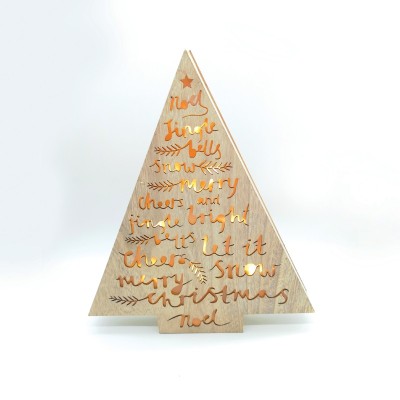 noel
Jingle
bells
Snow
merry
cheers and
jingle bright
bells let it
cheers snow
merry
christmas
noel